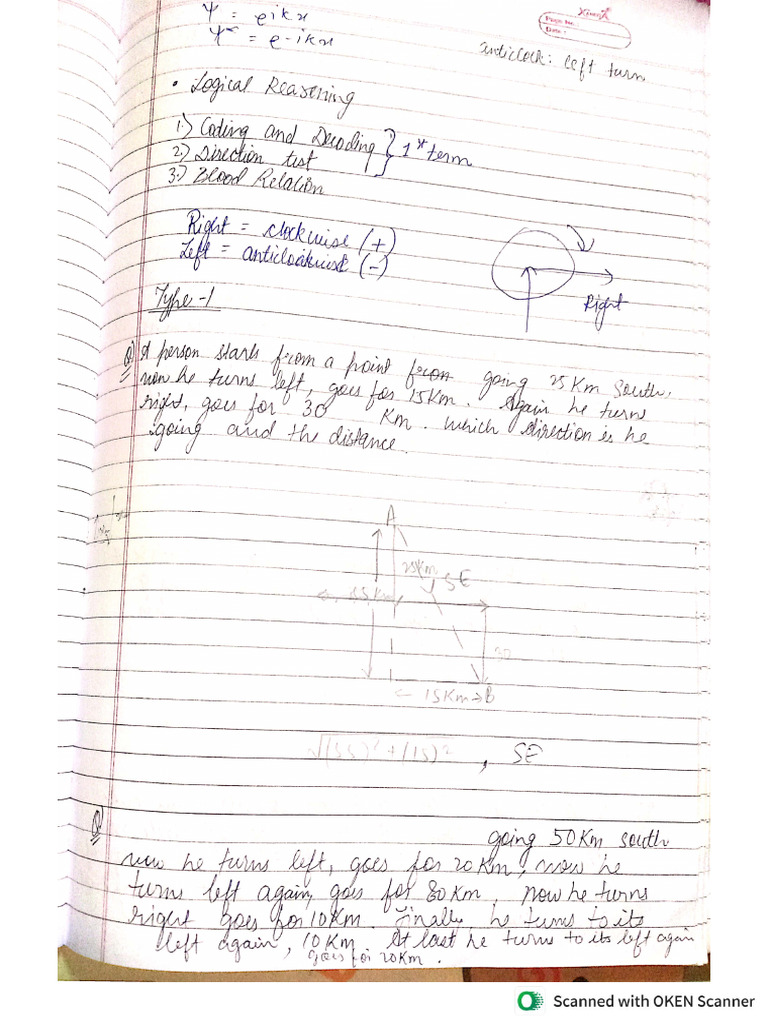 ψ = eikx
ψ* = e-ikx
Page No.
Date :
anticlock: left turn
• Logical Reasoning
1) Coding and Decoding
2) Direction test
} 1st term
3) Blood Relation
Right = clockwise (+)
Left = anticloakwise (-)
Right
Type-1
Q A person starts from a point from going 25 Km South,
now he turns left, goes for 15Km. Again he turns
right, goes for 30 Km. which direction is he
going and the distance.
A
25Km
SE
55Km
30
15Km B
√(55)² + (15)² , SE
Q
going 50Km south
now he turns left, goes for 20Km, now he
turns left again, goes for 80Km, now he turns
right goes for 10Km. Finally he turns to its
left again, 10Km. At last he turns to its left again
goes for 20Km.
Scanned with OKEN Scanner